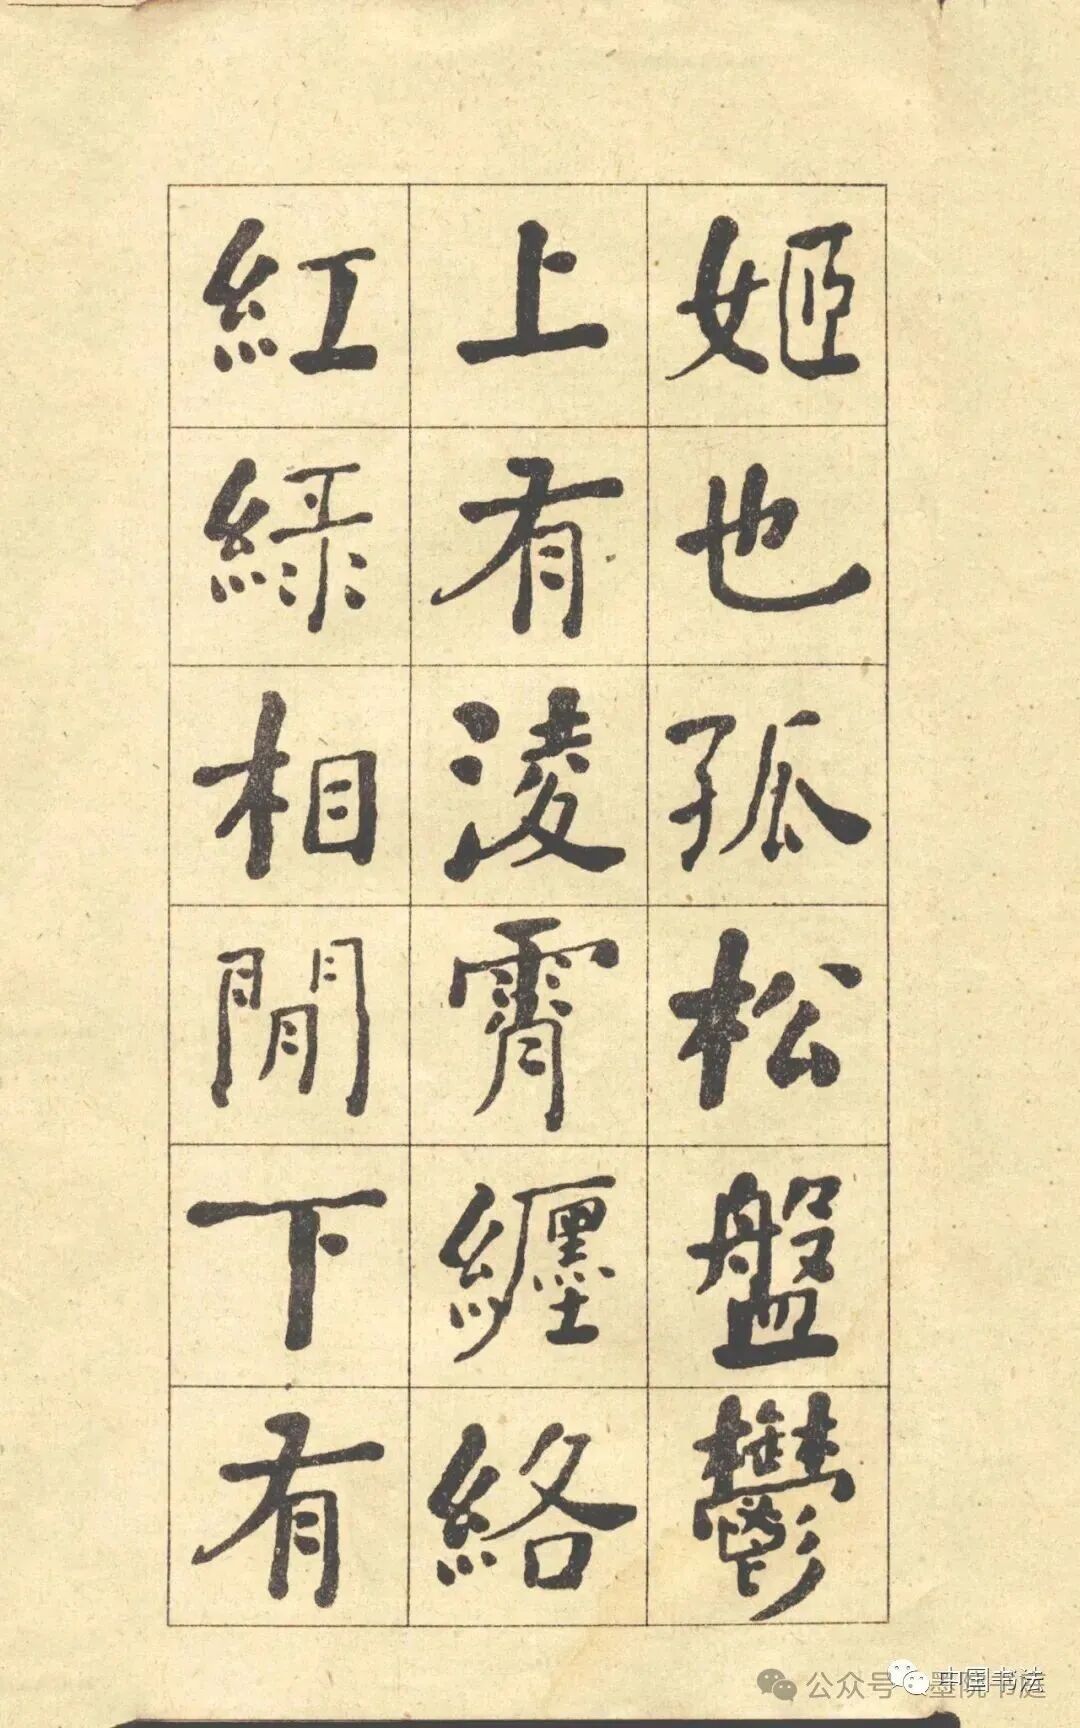 姬也孤松盤鬱
上有淩霄纏絡
紅綠相閒下有
公众号·墨院书庭
中国书法